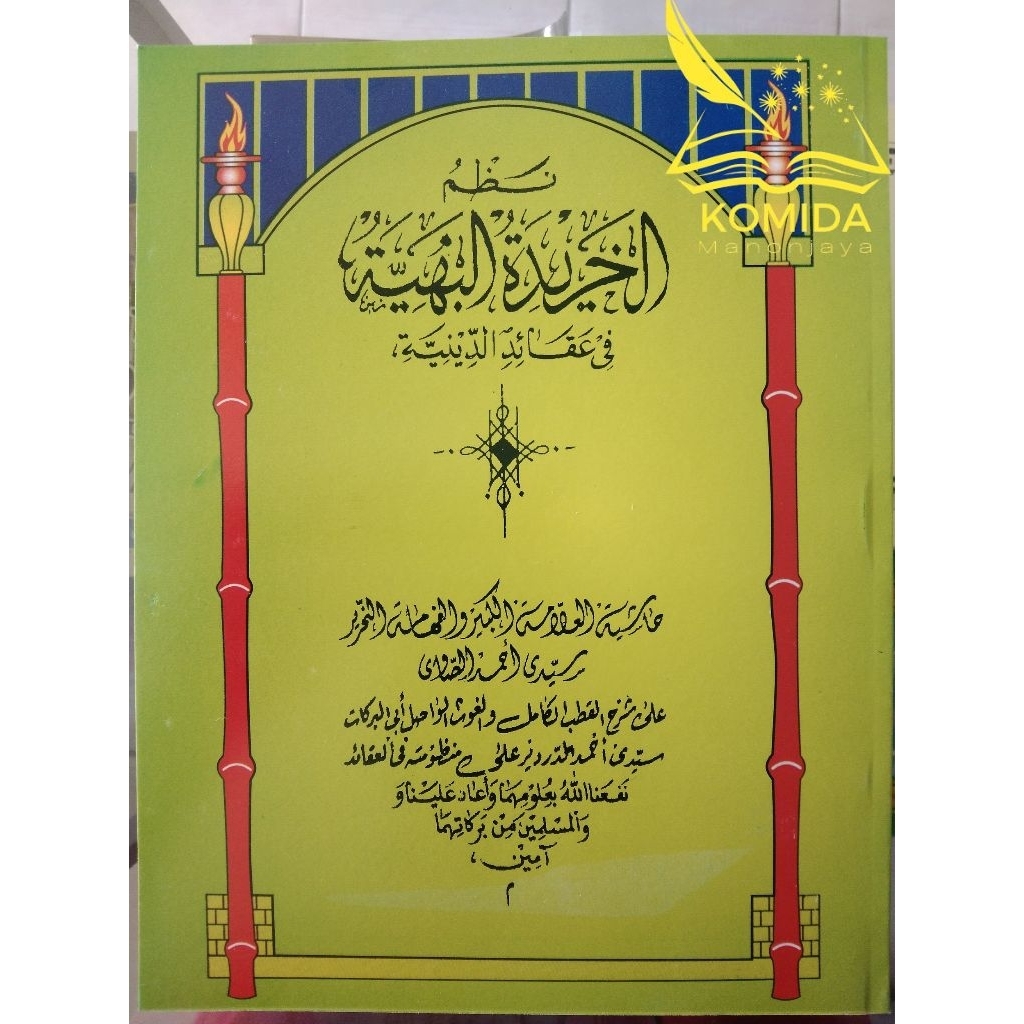 نَظْمُ
الْخَرِيْدَةُ الْبَهِيَّةُ
فِى عَقَائِدِ الدِّيْنِيَّةِ،
حاشية العلامة الكبير والفهامة النحرير
سيدى أحمد الصاوى
على شرح القطب الكامل والغوث الواصل أبي البركات
سيدى أحمد الدردير على منظومته في العقائد
نَفَعَنَا اللهُ بِعُلُومِهِمَا وَأَعَادَ عَلَيْنَا وَ
وَالْمُسْلِمِيْنَ مِنْ بَرَكَاتِهِمَا
آمِيْن،
م
KOMIDA
Manonjaya